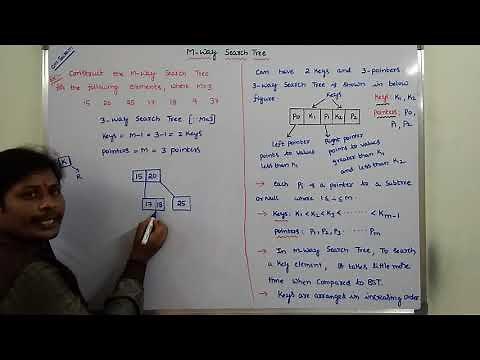 M-way Search Tree
Ex:- Construct the M-way Search Tree
for the following elements, where M=3
15 20 25 17 18 9 37
3-way Search Tree [∵ M=3]
Keys = M-1 = 3-1 = 2 Keys
pointers = M = 3 pointers
K
R
15 20
17 18
25
Can have 2 Keys and 3-pointers
3-way Search Tree is shown in below
figure
Keys
P0 K1 P1 K2 P2
Keys: K1, K2
pointers: P0,
P1, P2
Left pointer
points to values
less than K1
Right pointer
points to values
greater than K1
and less than K2
→ each Pi is a pointer to a subtree
or Null where 1≤i≤m
→ Keys: K1 < K2 < K3 < ...... < Km-1
pointers: P1, P2, P3 ..... Pm
→ In M-way Search Tree, To search
a Key element, it takes little more
time when compared to BST.
→ Keys are arranged in increasing order